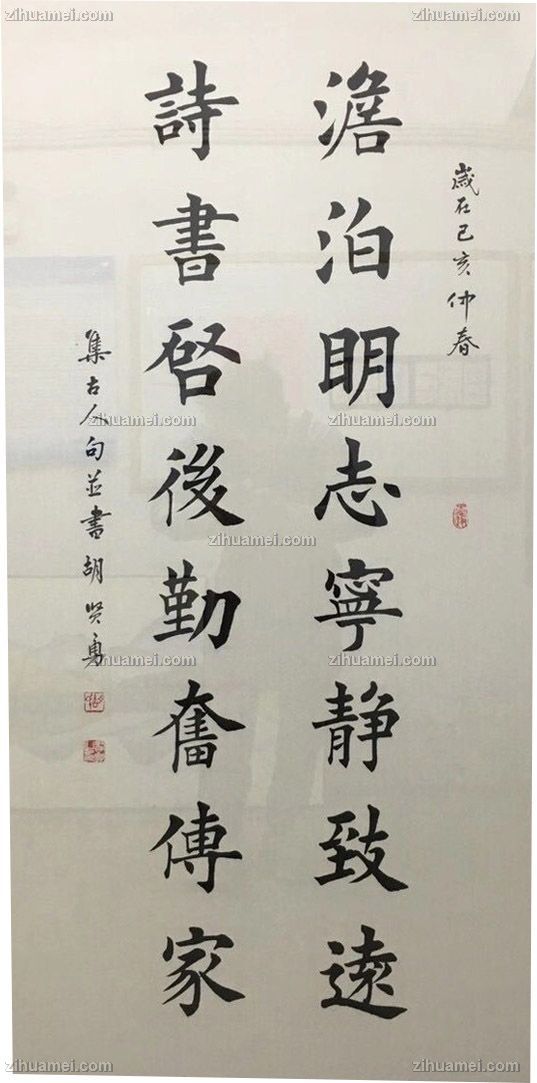 歲在己亥仲春
澹泊明志寧靜致遠
詩書啓後勤奮傳家
集古人句並書胡贤勇
zihuamei.com
zihuamei.com
zihuamei.com
zihuamei.com
zihuamei.com
zihuamei.com
zihuamei.com
zihuamei.com
zihuamei.com